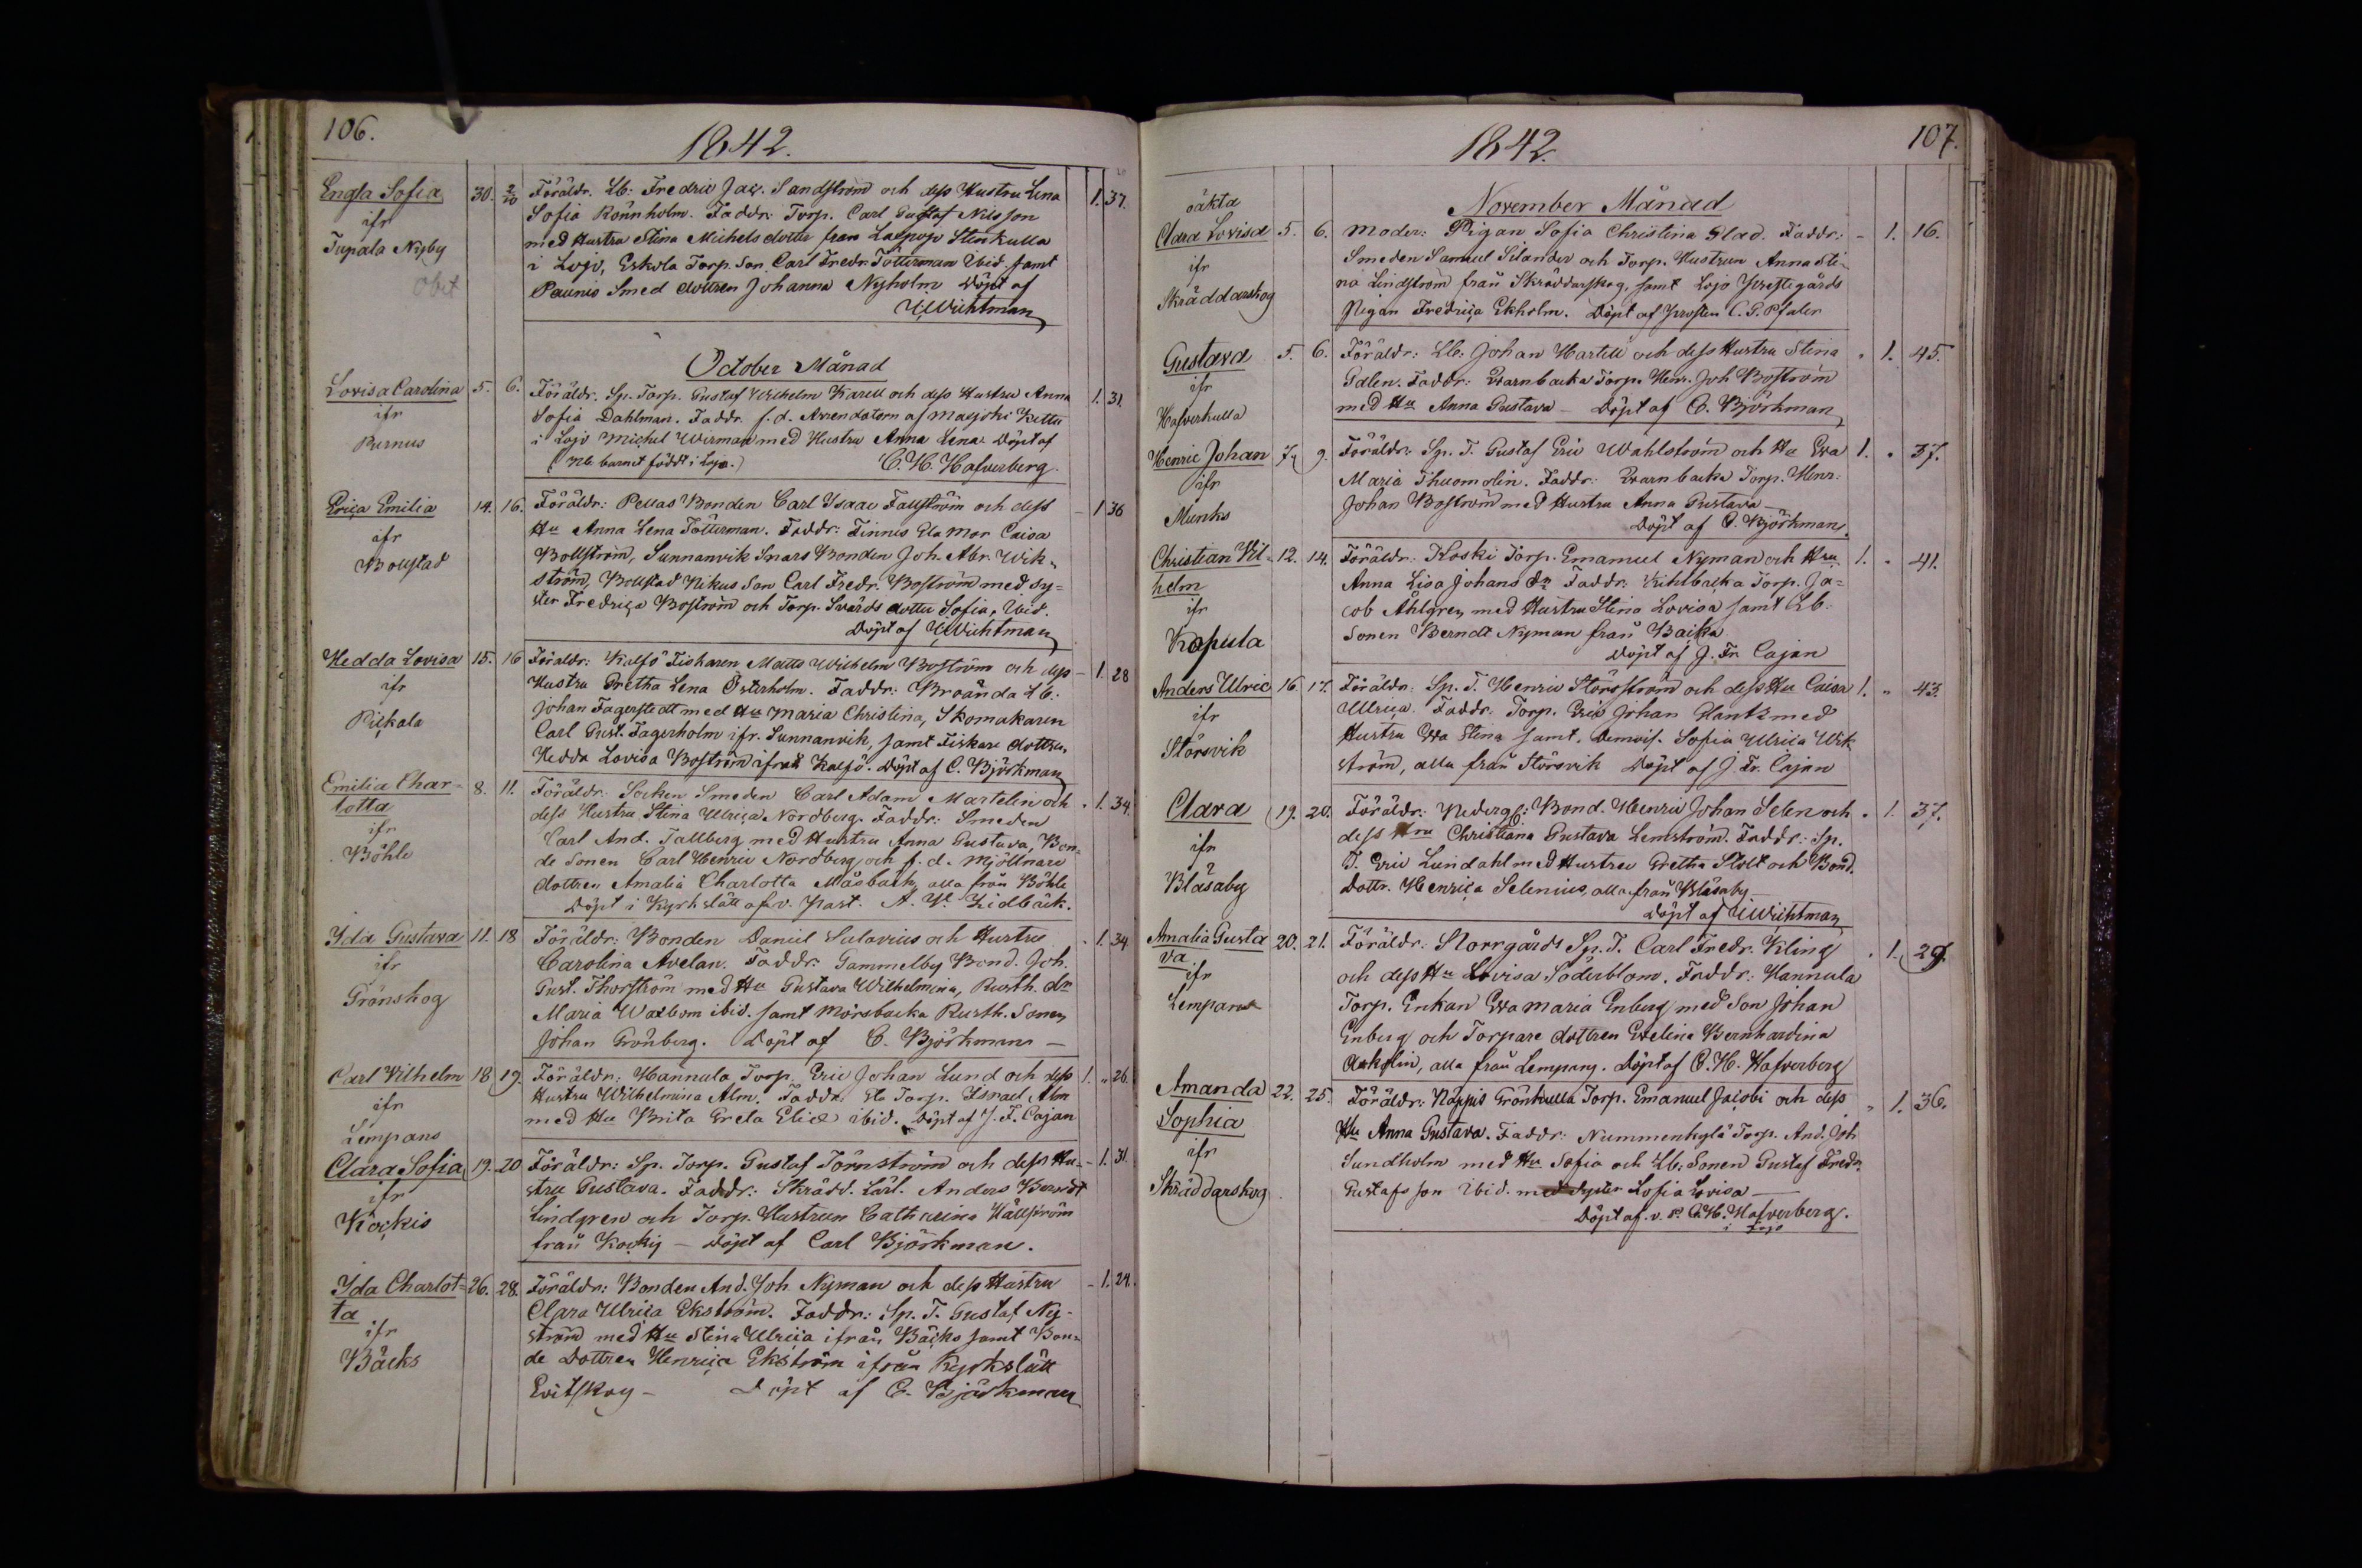 106.
1842.
Engla Sofia 30. 2/10 Föräldr. Lb: Fredric Jac. Sandström och dess Hustru Lena 1. 37.
ifr Sofia Rönnholm. Faddr: Torp. Carl Gustaf Nilsson
Tupala Nyby med Hustru Stina Michelsdotter från Stenkulla
Obiit i Lojo, Eskola Torp. Son Carl Fredr. Tötterman Ibid samt
Paunis Smed dottren Johanna Nyholm Döpt af
Wichtman
October Månad
Lovisa Carolina 5. 6. Föräldr. Sp. Torp. Gustaf Wilhelm Karell och dess Hustru Anna 1. 31.
ifr Sofia Dahlman. Faddr. f.d. Arrendatorn af
Purnus i Lojo Michel Wirman med Hustru Anna Lena. Döpt af
(Nb. barnet födt i Lojo.) C. H. Hafverberg.
Erica Emilia 14. 16. Föräldr: Pellas Bonden Carl Isaac Fallström och dess – 1 36
ifr Hu Anna Lena Tötterman. Faddr: Finnis Gla Mor Caisa
Bollstad Bollström, Sunnanvik Snars Bonden Joh. Abr. Wik-
ström, Bollstad Nikus Son Carl Fredr. Boström med Sy-
ster Fredrica Boström och Torp. Svärds dotter Sofia, Ibid.
Döpt af Wichtman
Hedda Lovisa 15. 16 Föräldr: Kalfö Fiskaren Matts Wilhelm Boström och dess – 1. 28
ifr Hustru Gretha Lena Österholm. Faddr: Broända Lb.
Pickala Johan Fagerstedt med Hu Maria Christina, Skomakaren
Carl Gust. Fagerholm ifr. Sunnanvik, samt Fiskare dottren
Hedda Lovisa Boström ifrån Kalfö. Döpt af C. Björkman
Emilia Char- 8. 11. Föräldr: Socken Smeden Carl Adam Martelin och . 1. 34.
lotta dess Hustru Stina Ulrica Nordberg. Faddr: Smeden
ifr Carl And. Tallberg med Hustru Anna Gustava, Bon-
Böhle de Sonen Carl Henric Nordberg och f. d. Mjölnare
dottren Amalia Charlotta Måsback, alla från Böhle
Döpt i Kyrkslätt af v. Past. A. W. Lidbäck.
Ida Gustava 11. 18 Föräldr: Bonden Daniel Salavius och Hustru . 1. 34.
ifr Carolina Avelan. Faddr: Gammelby Bond. Joh.
Grönskog Gust. Thorström med Hu Gustava Wilhelmina, Rusth. dr
Maria Waxbom ibid. samt Morsbacka Rusth. Sonen
Johan Grönberg. Döpt af C. Björkman –
Carl Wilhelm 18 19. Föräldr: Hannula Torp. Eric Johan Lund och dess 1. " 26.
ifr Hustru Wilhelmina Alm. Faddr. Torp. Israel Alm
Lempans med Hu Brita Greta Elice ibid. Döpt af J. F. Cajan
Clara Sofia 19. 20 Föräldr: Sp. Torp. Gustaf Törnström och dess Hu- – 1. 31.
ifr stru Gustava. Faddr: Skrädd. Lärl. Anders Berndt
Kockis Lindgren och Torp. Hustrun Catharina Hällström
från Kockis – Döpt af Carl Björkman.
Ida Charlot- 26. 28. Föräldr: Bonden And. Joh. Nyman och dess Hustru – 1. 24.
ta Clara Ulrica Ekström. Faddr: Sp. T. Gustaf Ny-
ifr ström med Hu Stina Ulrica ifrån Bäcks samt Bon-
Bäcks de Dottren Henrica Ekström ifrån Kyrkslätt
Evitskog – Döpt af C. Björkman
1842.
107.
November Månad
oäkta
Clara Lovisa 5. 6. Moder: Pigan Sofia Christina Glad. Faddr: – 1. 16.
ifr Smeden Samuel Silander och Torp. Hustrun Anna Sti-
Skräddarskog na Lindström från Skräddarskog, samt Lojo Prestegårds
Pigan Fredrica Ekholm. Döpt af Prosten C. G. Pfaler
Gustava 5. 6. Föräldr: Lb: Johan Hartell och dess Hustru Stina . 1. 45.
ifr Galen. Faddr: Qvarnbacka Torp. Henr. Joh Boström
Hafverkulla med Hu Anna Gustava – Döpt af C. Björkman
Henric Johan 7. 9. Föräldr: Sp. T. Gustaf Eric Wahlström och Hu Eva 1. . 37.
ifr Maria Thuomolin. Faddr: Qvarnbacka Torp. Henr.
Munks Johan Boström med Hustru Anna Gustava –
Döpt af C. Björkman.
Christian Wil- 12. 14. Föräldr: Koski Torp. Emanuel Nyman och Hru 1. . 41.
helm Anna Lisa Johans dr Faddr: Kihlbacka Torp. Ja-
ifr cob Åhlgren med Hustru Stina Lovisa samt Lb.
Kapula Sonen Berndt Nyman från Baika
Döpt af J. Fr. Cajan
Anders Ulric 16. 17. Föräldr: Sp. T. Henric Störsström och dess Hu Caisa 1. " 43.
ifr Ulrica. Faddr. Torp. Eric Johan Hank med
Störsvik Hustru Eva Stina samt Demois. Sofia Ulrica Wik
ström, alla från Störsvik Döpt af J. Fr. Cajan
Clara 19. 20. Föräldr: Nederg: Bond. Henric Johan Selen och . 1. 37.
ifr dess Hru Christiana Gustava Lemström. Faddr: Sp.
Bläsaby T. Eric Lundahl med Hustru Gretha Stolt och Bond.
dottr. Henrica Selenius, alla från Bläsaby –
Döpt af Wichtman
Amalia Gusta 20. 21. Föräldr: Storrgårds Sp. T. Carl Fredr. Kling . 1. 29.
va och dess Hu Lovisa Söderblom. Faddr: Hannula
ifr Torp. Enkan Eva Maria Enberg med Son Johan
Lempans Enberg och Torpare dottren Evelina Bernhardina
Askolin, alla från Lempans. Döpt af C. H. Hafverberg
Amanda 22. 25. Föräldr: Näppis Grönkulla Torp. Emanuel Jacobi och dess " 1. 36.
Sophia Hu Anna Gustava. Faddr: Nummenkylä Torp. And. Joh
ifr Sundholm med Hu Sofia och Lb. Sonen Gustaf Fredr.
Skräddarskog Gustafsson Ibid. med Syster Sofia Lovisa –
Döpt af v. P. C. H. Hafverberg.
i Lojo